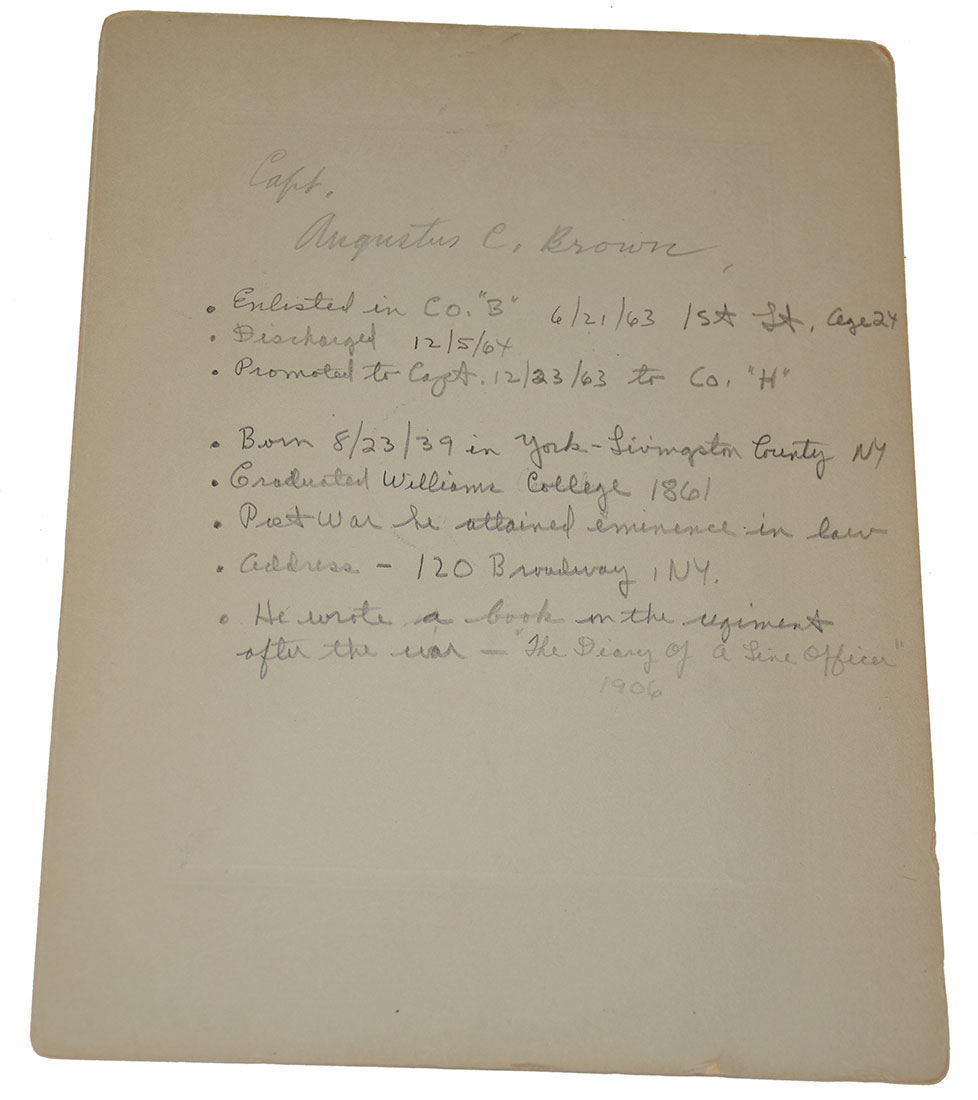 Capt.
Augustus C. Brown,
• Enlisted in Co. "B" 6/21/63 1st Lt, age 24
• Discharged 12/5/64
• Promoted to Capt. 12/23/63 to Co. "H"
• Born 8/23/39 in York - Livingston County NY
• Graduated Williams College 1861
• Post War he attained eminence in law
• Address - 120 Broadway, NY.
• He wrote a book on the regiment
after the war - "The Diary Of A Line Officer"
1906